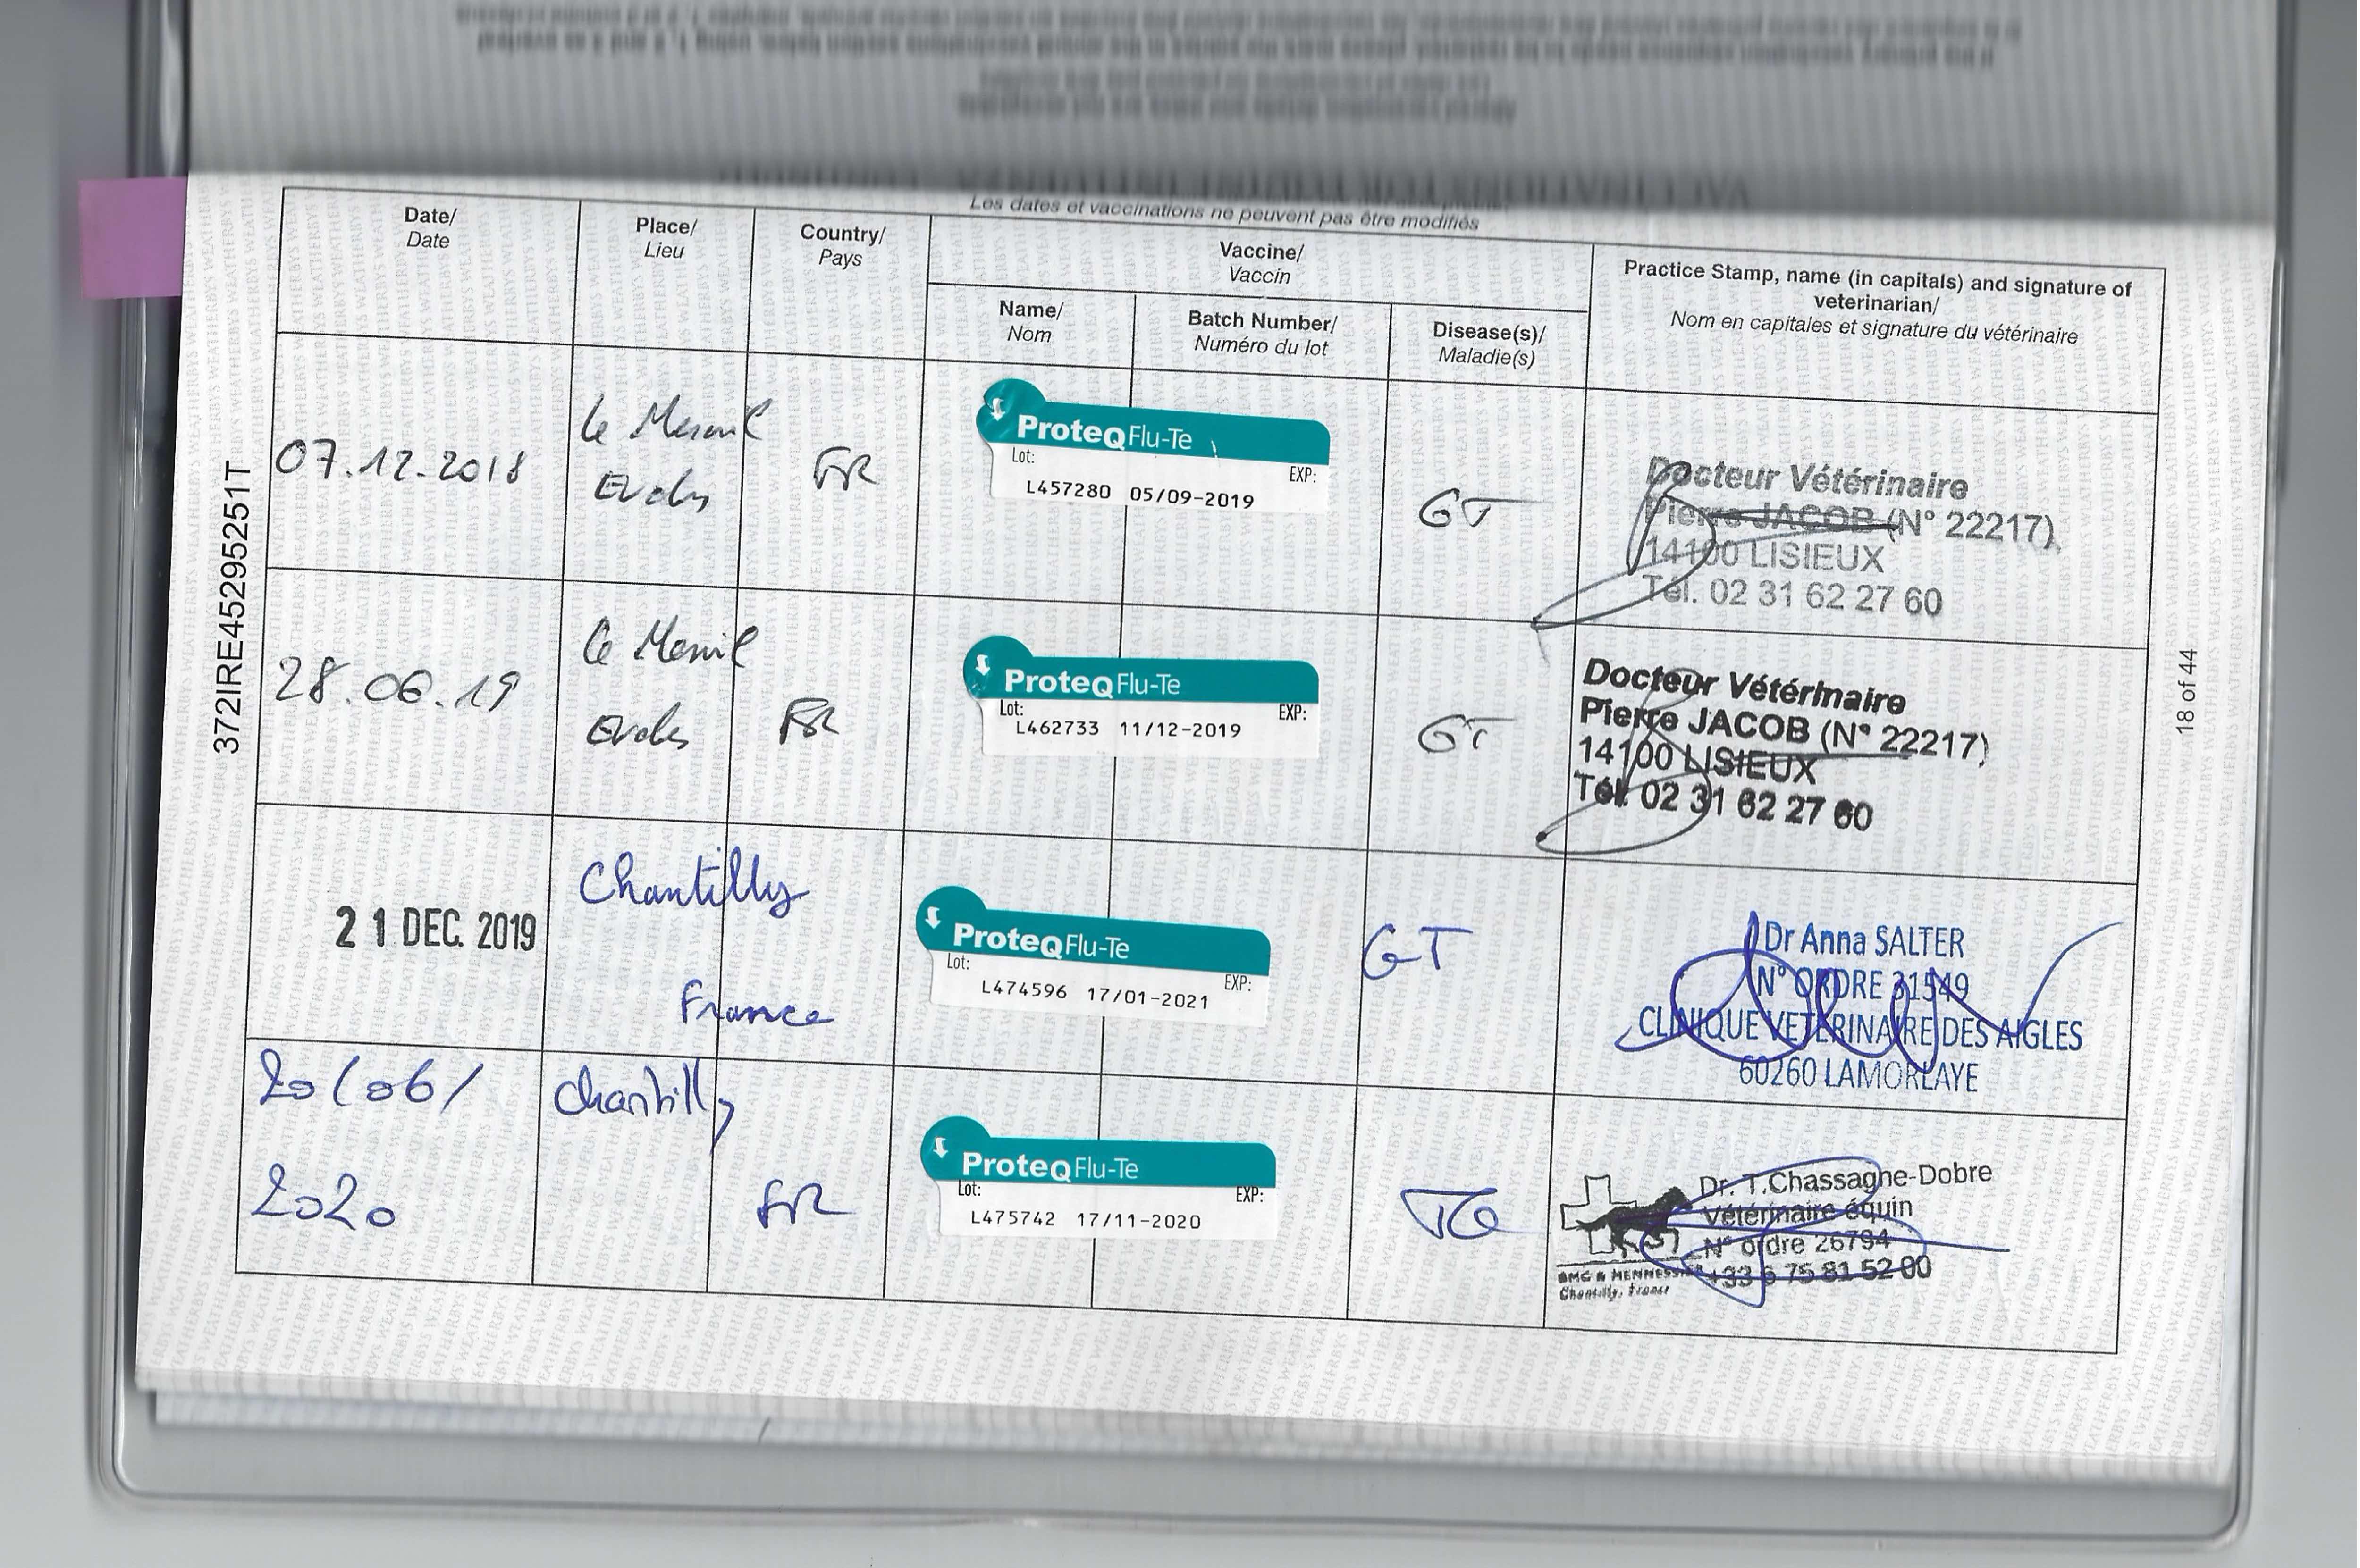 Les dates et vaccinations ne peuvent pas être modifiés
Date/
Date
Place/
Lieu
Country/
Pays
Vaccine/
Vaccin
Name/
Nom
Batch Number/
Numéro du lot
Disease(s)/
Maladie(s)
Practice Stamp, name (in capitals) and signature of
veterinarian/
Nom en capitales et signature du vétérinaire
07.12.2018
Le Mesnil
FR
ProteqFlu-Te
Lot:
EXP:
L457280 05/09-2019
GT
Docteur Vétérinaire
Pierre JACOB (N° 22217)
14100 LISIEUX
Tél. 02 31 62 27 60
28.06.19
Le Mesnil
FR
ProteqFlu-Te
Lot:
EXP:
L462733 11/12-2019
GT
Docteur Vétérinaire
Pierre JACOB (N° 22217)
14100 LISIEUX
Tél. 02 31 62 27 60
21 DEC. 2019
Chantilly
France
ProteqFlu-Te
Lot:
EXP:
L474596 17/01-2021
GT
Dr Anna SALTER
N° ORDRE 31549
CLINIQUE VETERINAIRE DES AIGLES
60260 LAMORLAYE
20/06/
2020
Chantilly
FR
ProteqFlu-Te
Lot:
EXP:
L475742 17/11-2020
TG
Dr. T.Chassagne-Dobre
Vétérinaire équin
N° ordre 26794
+33 6 75 81 52 00
Chantilly, France
372IRE45295251T
18 of 44